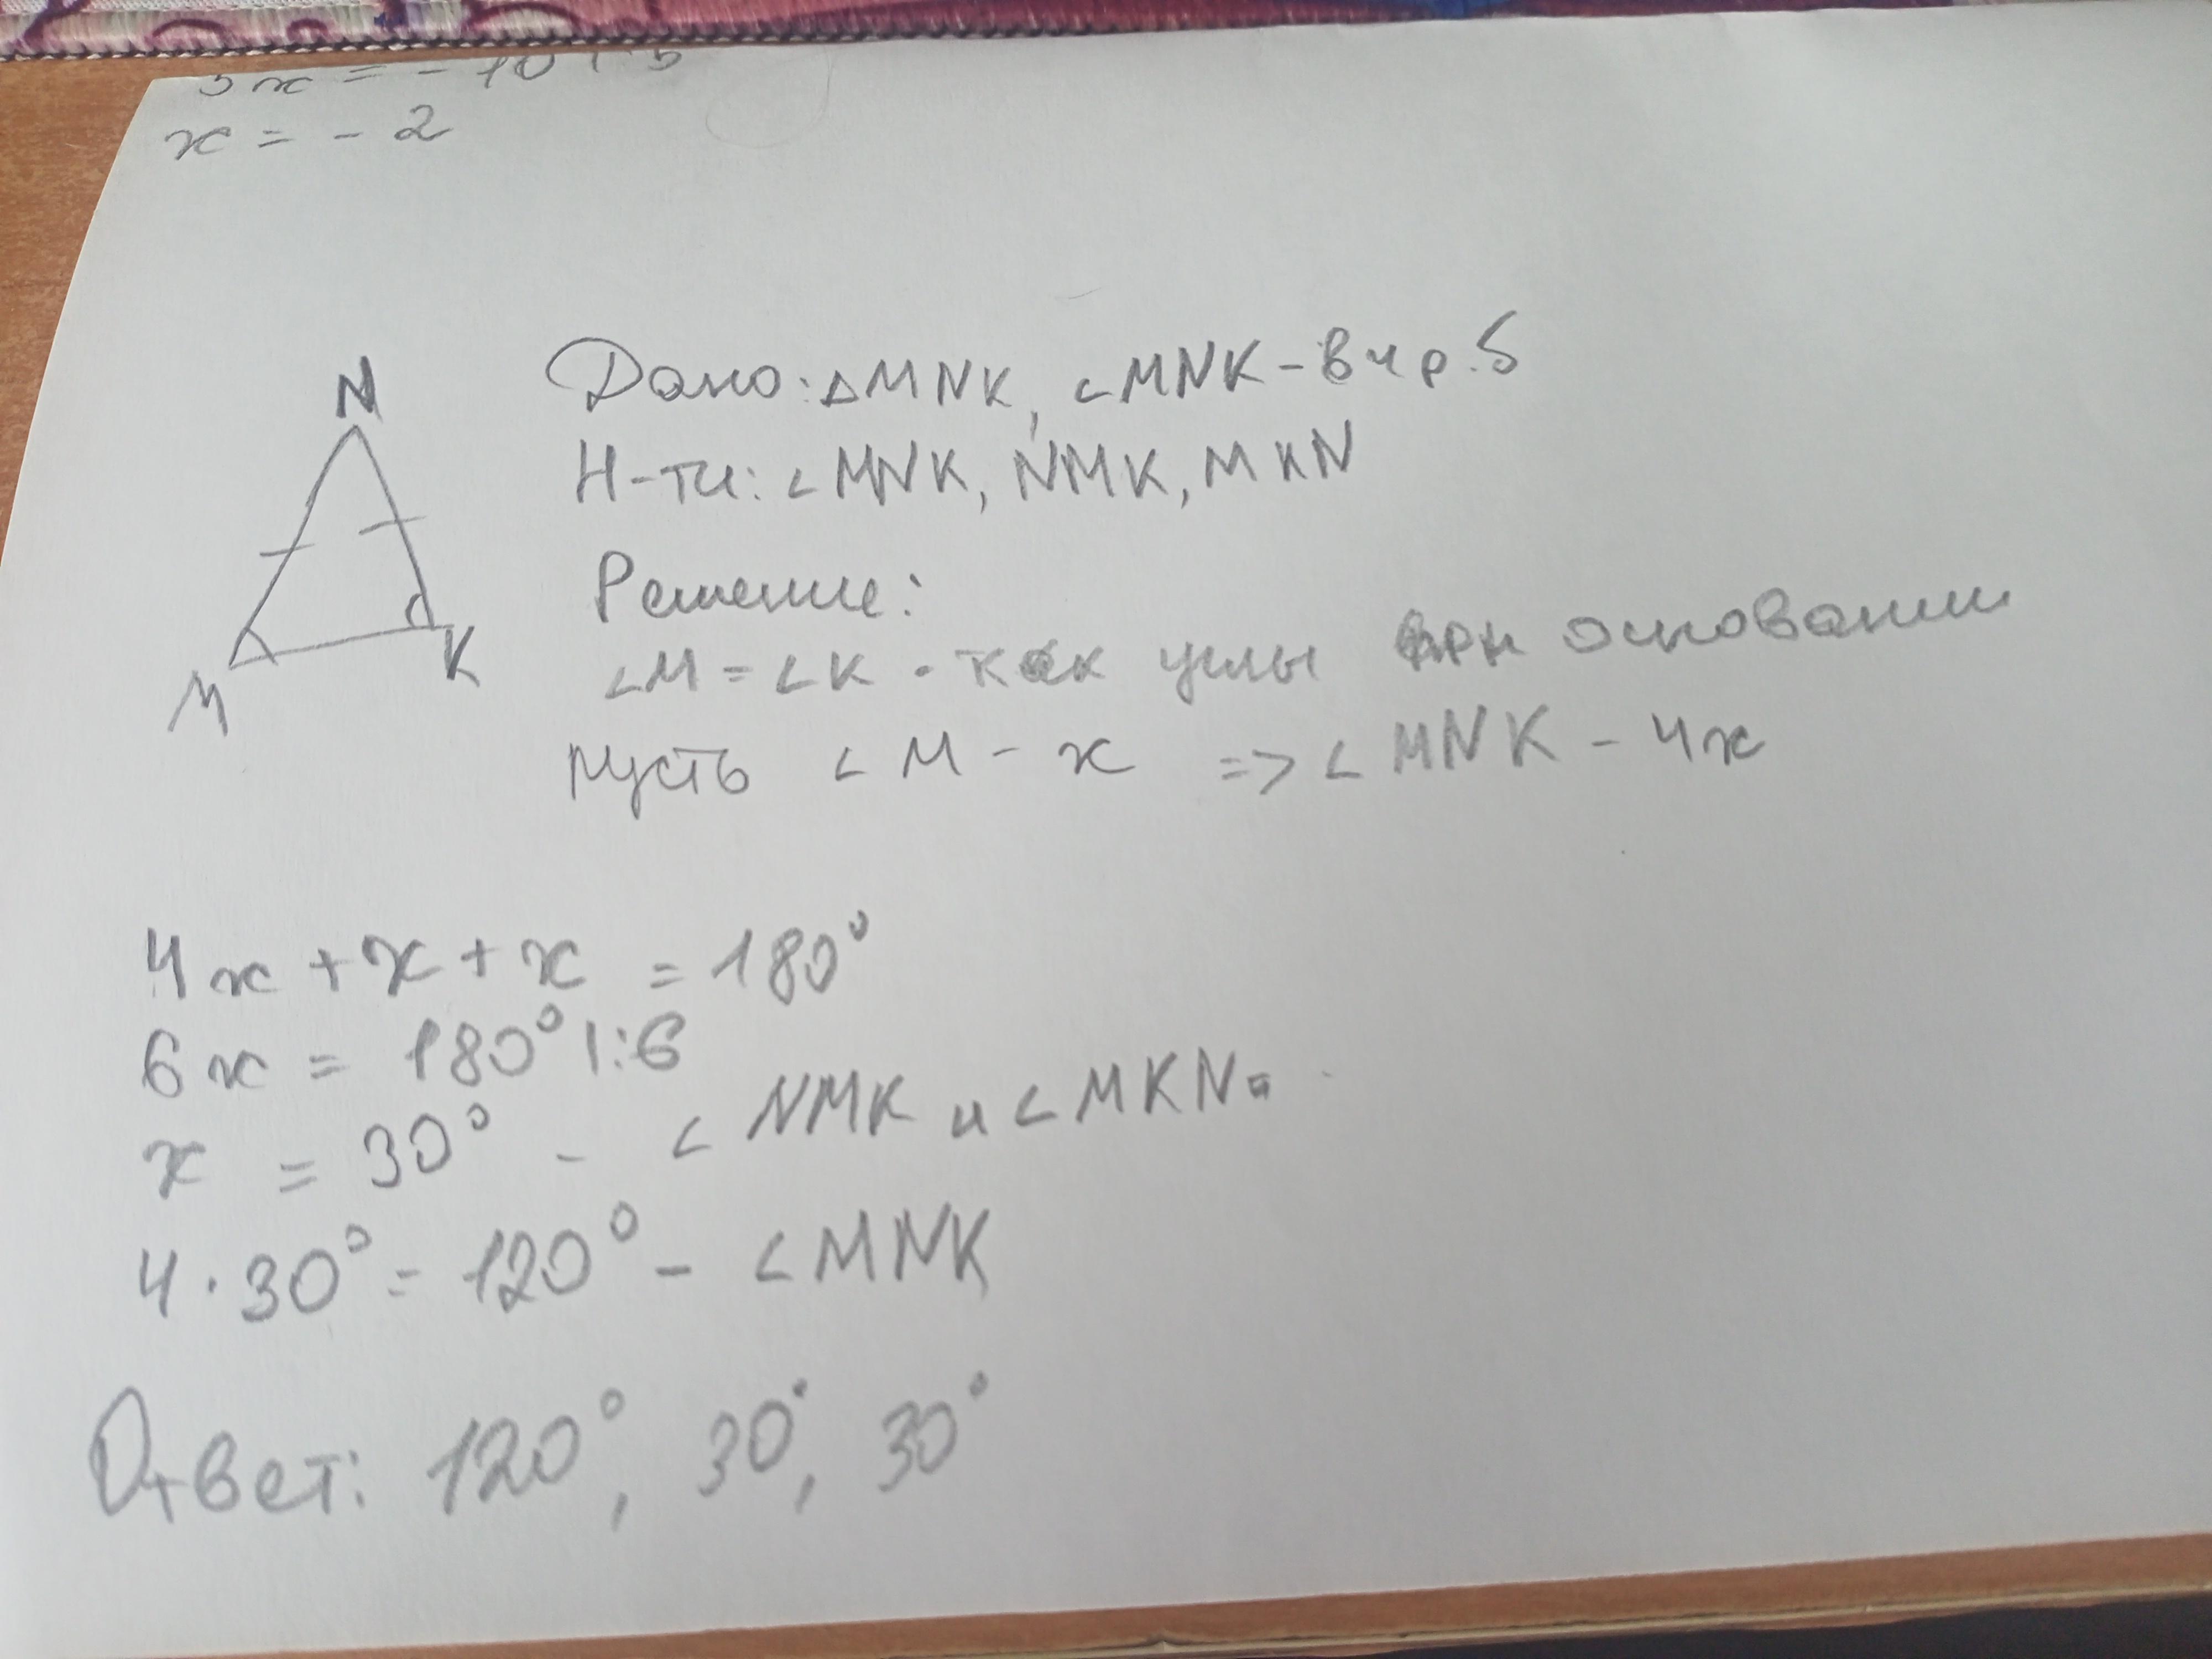 x = - 2
N
M
K
Дано: △MNK, ∠MNK - в 4 р. б
Н-ти: ∠MNK, NMK, MKN
Решение:
∠M = ∠K - как углы при основании
пусть ∠M - x => ∠MNK - 4x
4x + x + x = 180°
6x = 180° |:6
x = 30° - ∠NMK и ∠MKN
4 · 30° = 120° - ∠MNK
Ответ: 120°, 30°, 30°